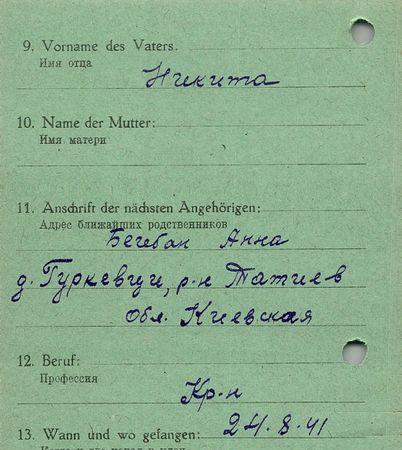 9. Vorname des Vaters.
Имя отца
Никита
10. Name der Mutter:
Имя матери
11. Anschrift der nächsten Angehörigen:
Адрес ближайших родственников
Бегебан Анна
д. Гуркевци, р-н Татиев
Обл. Киевская
12. Beruf:
Профессия
Кр-н
13. Wann und wo gefangen: 24.8.41